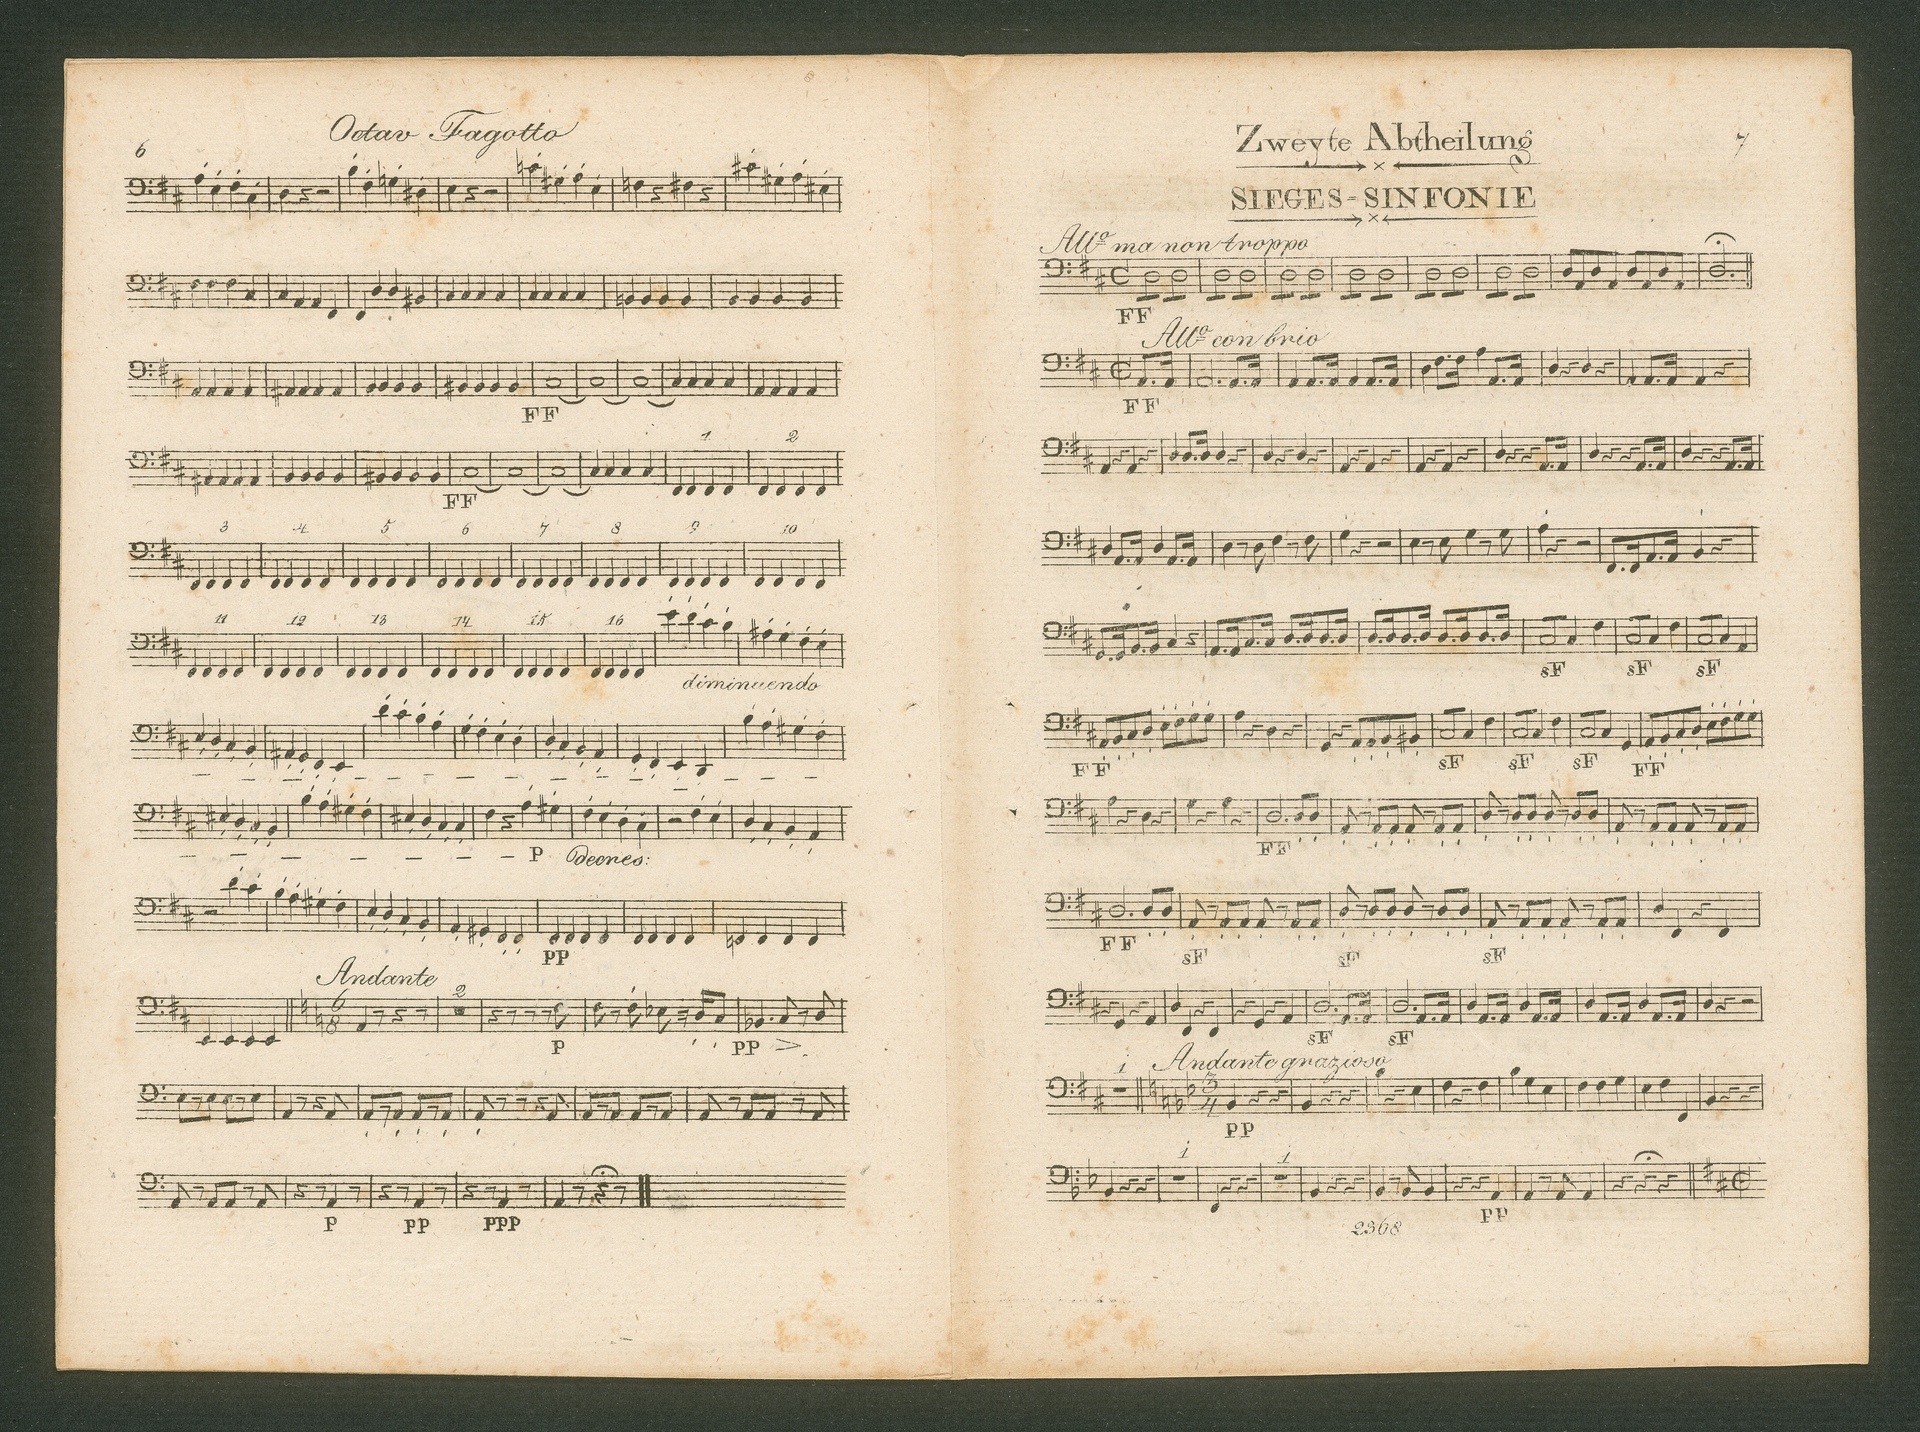 6
Octav Fagotto
FF
1 2
FF
3 4 5 6 7 8 9 10
11 12 13 14 15 16
diminuendo
P Decres:
PP
Andante
6
8
2
P PP
P PP PPP
7
Zweyte Abtheilung
SIEGES-SINFONIE
Allo ma non troppo
FF
Allo con brio
FF
sF sF sF
FF sF sF sF FF
FF
FF sF sF sF
sF sF
1 Andante grazioso
3
4
PP
1 1
PP
2368